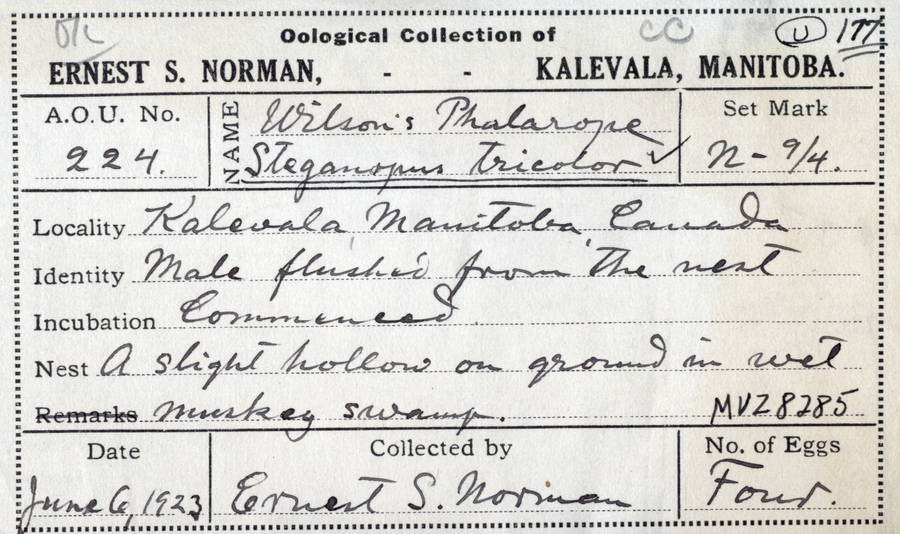 Oological Collection of
ERNEST S. NORMAN, - - KALEVALA, MANITOBA.
U 177
A.O.U. No. 224.
NAME Wilson's Phalarope
Steganopus tricolor ✓
Set Mark N-9/4.
Locality Kalevala, Manitoba, Canada
Identity Male flushed from the nest
Incubation Commenced.
Nest A slight hollow on ground in wet
Remarks muskeg swamp. MVZ8285
Date June 6, 1923
Collected by Ernest S. Norman
No. of Eggs Four.